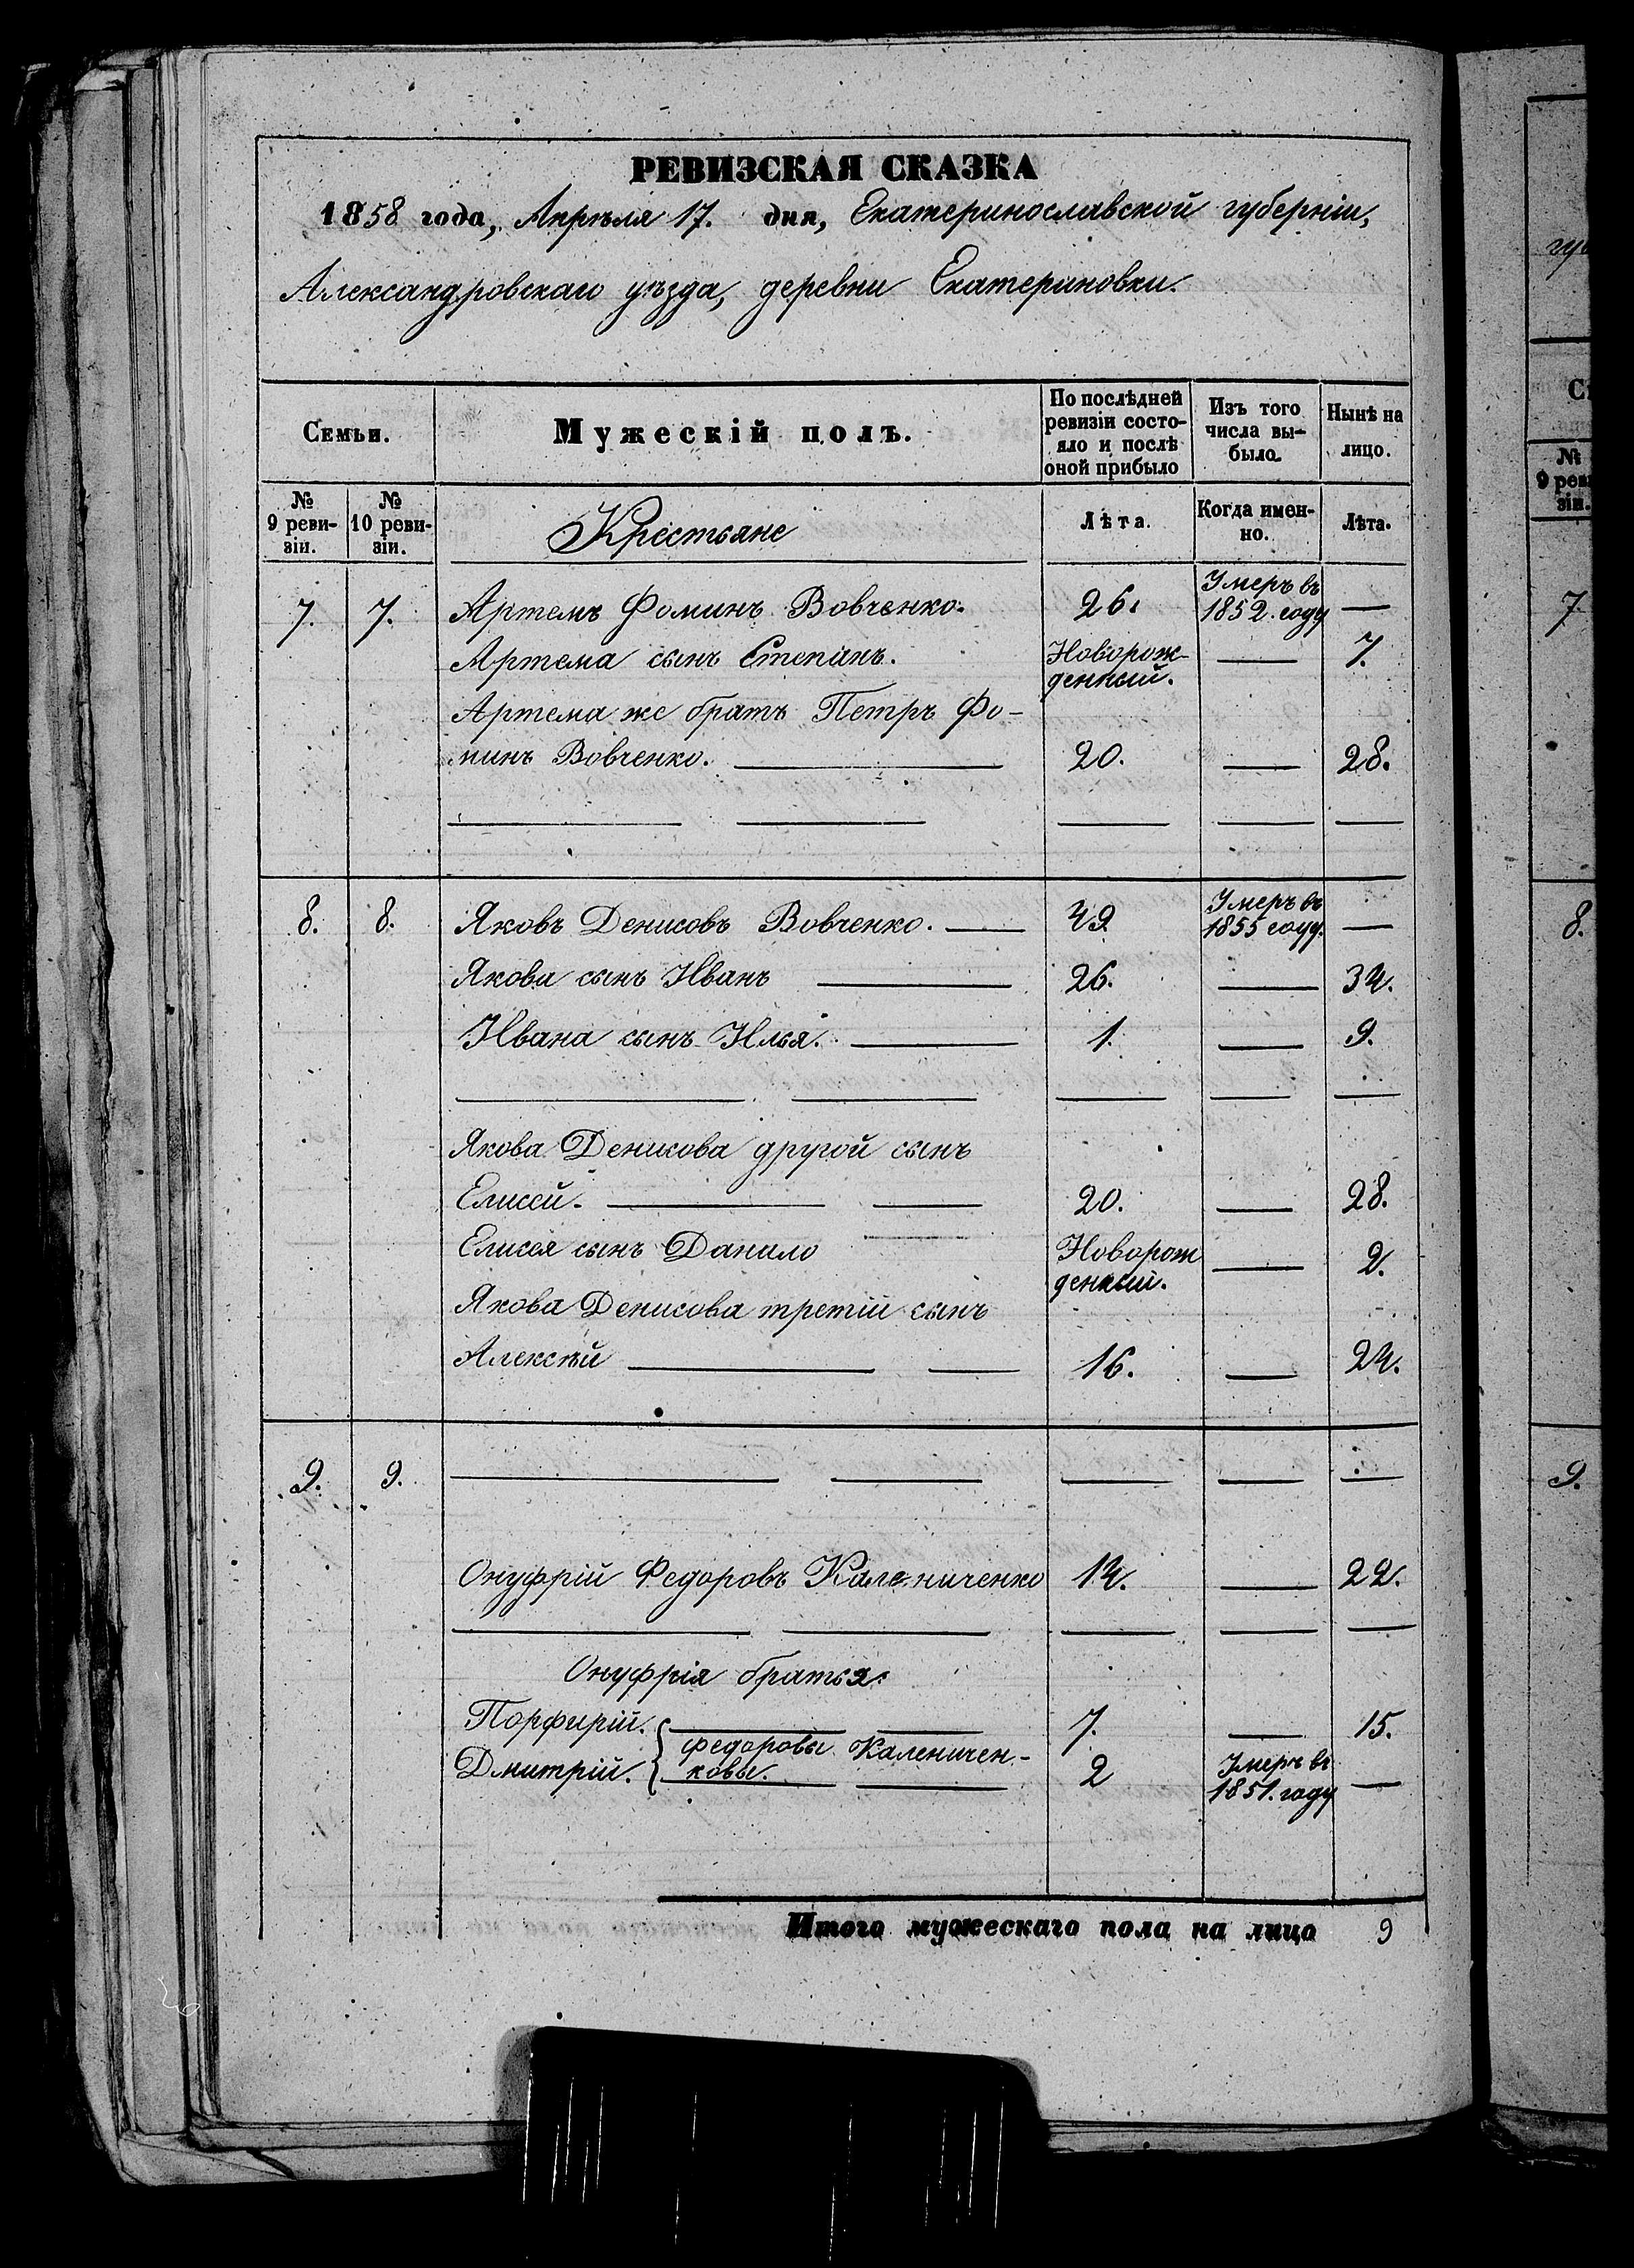 РЕВИЗСКАЯ СКАЗКА
1858 года, Апрѣля 17. дня, Екатеринославской губерніи,
Александровскаго уѣзда, деревни Екатериновки.
Семьи.
Мужескій полъ.
По послѣдней
ревизіи состо-
яло и послѣ
оной прибыло
Изъ того
числа вы-
было.
Нынѣ на
лицо.
№
9 реви-
зіи.
№
10 реви-
зіи.
Крестьяне
Лѣта.
Когда имен-
но.
Лѣта.
7. 7. Артемъ Фоминъ Вовченко. 26. Умеръ въ
1852. году —
Артема сынъ Степанъ. Новорож-
денный. — 7.
Артема же братъ Петръ Фо-
минъ Вовченко. — 20. — 28.
8. 8. Яковъ Денисовъ Вовченко. — 49 Умеръ въ
1855 году. —
Якова сынъ Иванъ — 26. — 34.
Ивана сынъ Илья. — 1. — 9.
Якова Денисова другой сынъ
Елисей. — 20. — 28.
Елисея сынъ Данило Новорож
денный. — 2.
Якова Денисова третій сынъ
Алексѣй — 16. — 24.
9. 9.
Онуфрій Федоровъ Каленниченко 14. — 22.
Онуфрія братья:
Порфирій. { 7. — 15.
Федоровы Каленичен-
Дмитрій. ковы. 2 Умеръ въ
1851. году —
Итого мужескаго пола на лицо 9
гу
С
№
9 реви
зіи.
7
8.
9.